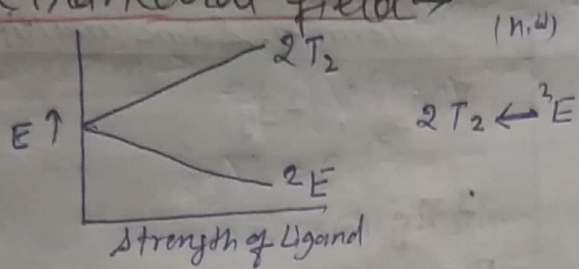 field →
(h.w)
2T₂
E ↑
2T₂ ← ²E
²E
Strength of Ligand